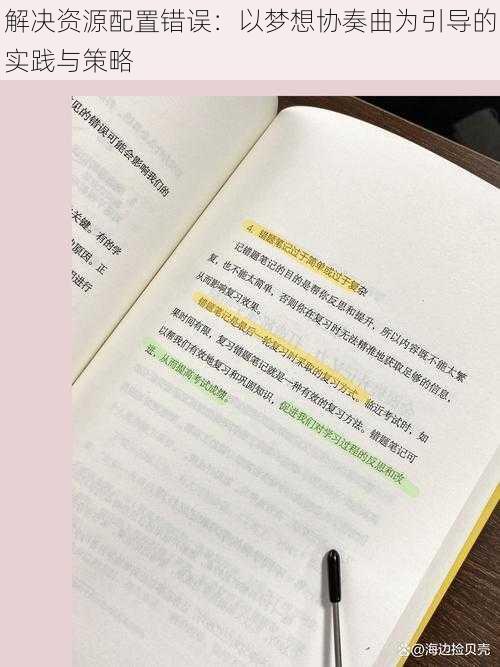 解决资源配置错误：以梦想协奏曲为引导的
实践与策略
见的错误可能会影响我们的
关键。有的学
原因。正
进行
4. 错题笔记过于简单或过于复杂
记错题笔记的目的是帮你反思和提升，所以内容既不能太繁
复，也不能太简单，否则你在复习时无法精准地获取足够的信息，
从而影响复习效果。
错题笔记是最后一轮复习时采取的复习方式。临近考试时，如
果时间有限，复习错题笔记就是一种有效的复习方法。错题笔记可
以帮我们有效地复习和巩固知识，促进我们对学习过程的反思和改
进，从而提高考试成绩。
@海边捡贝壳